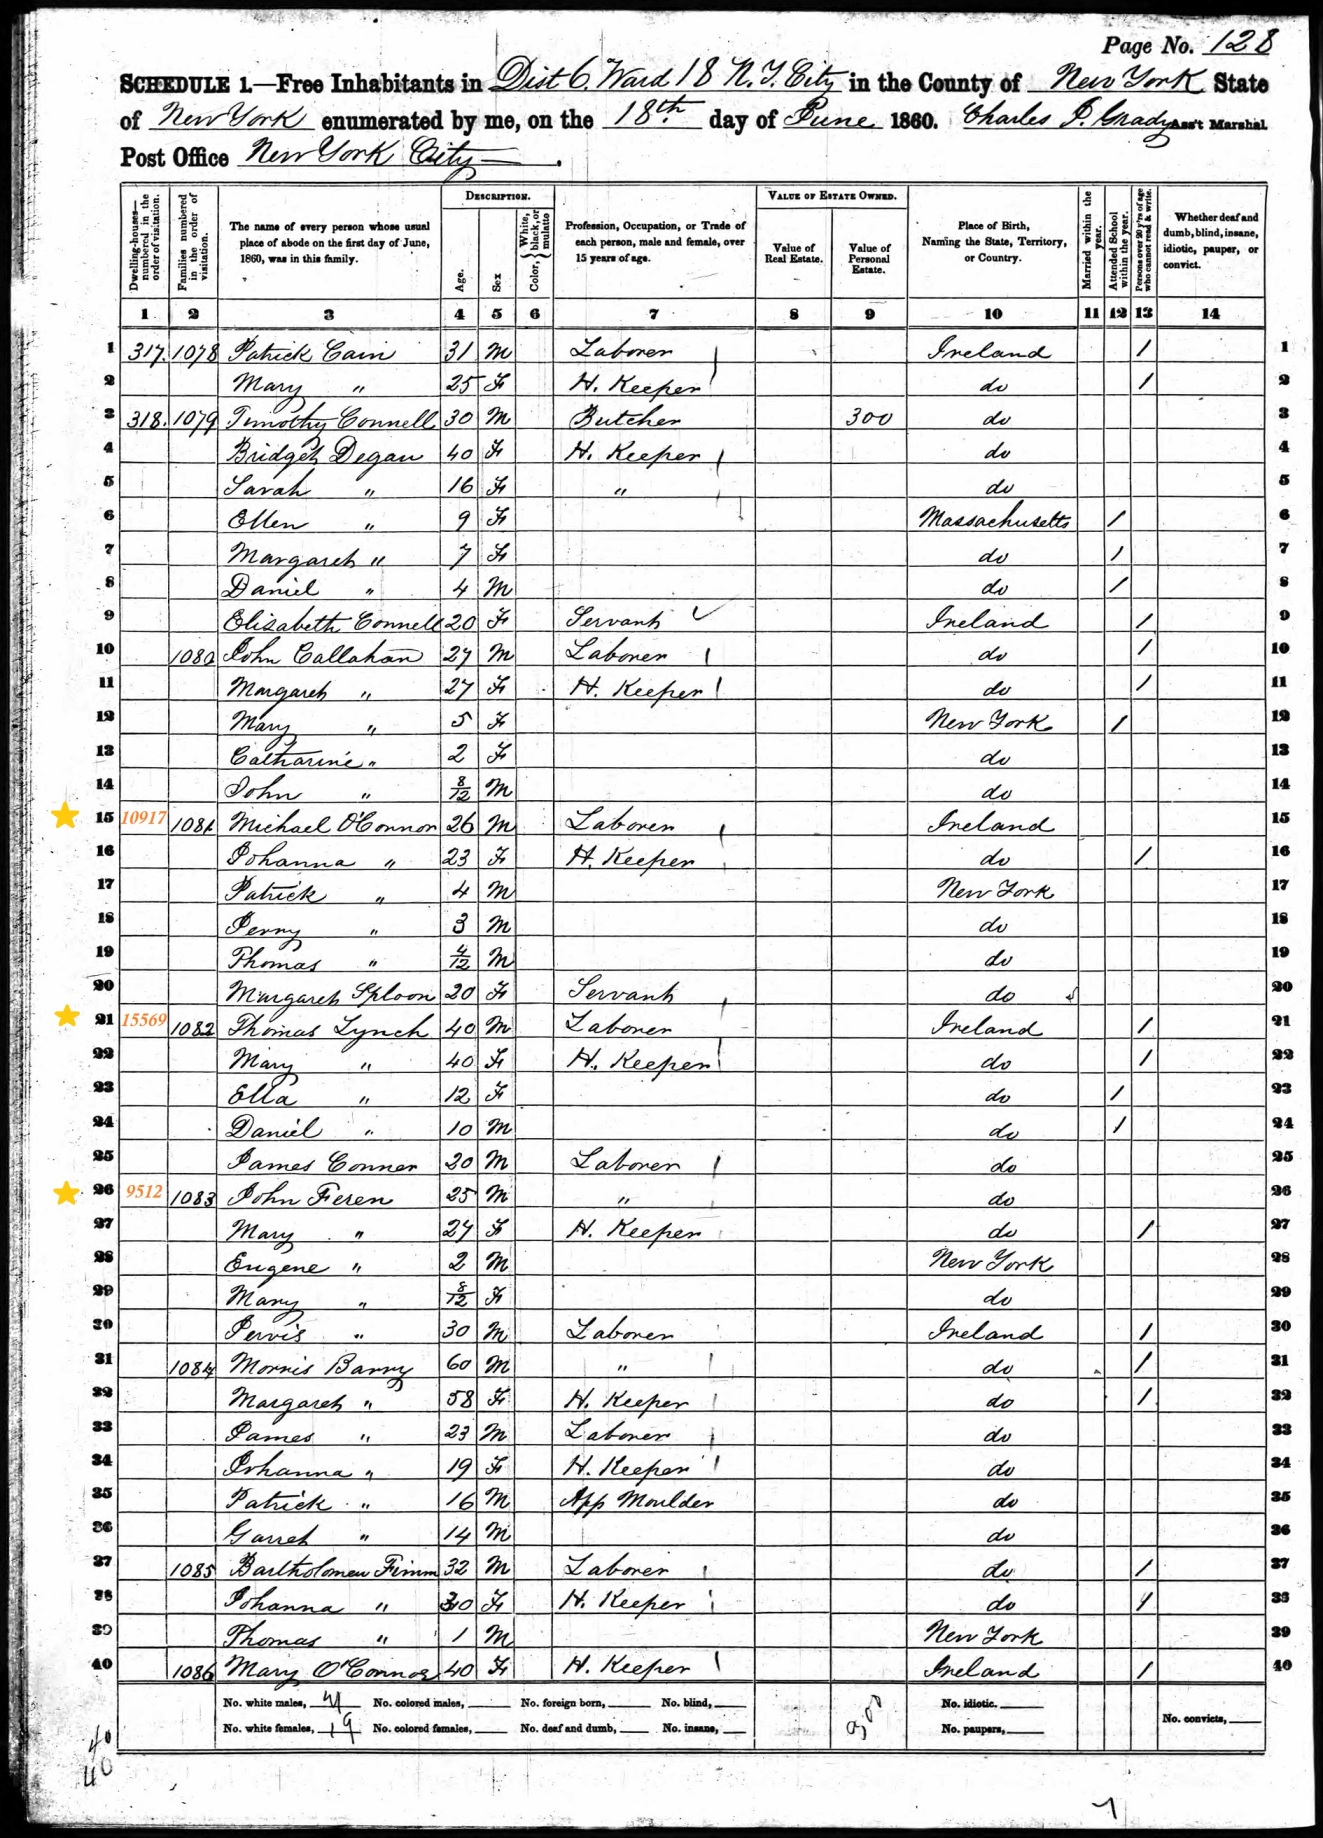 Page No. 128
SCHEDULE 1.—Free Inhabitants in Dist 6. Ward 18 N. Y. City in the County of New York State
of New York enumerated by me, on the 18th day of June 1860. Charles J. Grady Ass't Marshal.
Post Office New York City.
Dwelling-houses—numbered in the order of visitation.
Families numbered in the order of visitation.
The name of every person whose usual place of abode on the first day of June, 1860, was in this family.
DESCRIPTION.
Age.
Sex
Color, White, black, or mulatto
Profession, Occupation, or Trade of each person, male and female, over 15 years of age.
VALUE OF ESTATE OWNED.
Value of Real Estate.
Value of Personal Estate.
Place of Birth, Naming the State, Territory, or Country.
Married within the year.
Attended School within the year.
Persons over 20 y'rs of age who cannot read & write.
Whether deaf and dumb, blind, insane, idiotic, pauper, or convict.
1 2 3 4 5 6 7 8 9 10 11 12 13 14
1 317. 1078 Patrick Cain 31 M Laborer Ireland / 1
2 Mary " 25 F H. Keeper do / 2
3 318. 1079 Timothy Connell 30 M Butcher 300 do 3
4 Bridget Degan 40 F H. Keeper do 4
5 Sarah " 16 F " do 5
6 Ellen " 9 F Massachusetts / 6
7 Margaret " 7 F do / 7
8 Daniel " 4 M do / 8
9 Elizabeth Connell 20 F Servant Ireland / 9
10 1080 John Callahan 27 M Laborer do / 10
11 Margaret " 27 F H. Keeper do / 11
12 Mary " 5 F New York / 12
13 Catharine " 2 F do 13
14 John " 8/12 M do 14
15 10917 1081 Michael O'Connor 26 M Laborer Ireland 15
16 Johanna " 23 F H. Keeper do / 16
17 Patrick " 4 M New York 17
18 Jerry " 3 M do 18
19 Thomas " 4/12 M do 19
20 Margaret Sploon 20 F Servant do 20
21 15569 1082 Thomas Lynch 40 M Laborer Ireland / 21
22 Mary " 40 F H. Keeper do / 22
23 Ella " 12 F do / 23
24 Daniel " 10 M do / 24
25 James Conner 20 M Laborer do 25
26 9512 1083 John Feren 25 M " do 26
27 Mary " 27 F H. Keeper do / 27
28 Eugene " 2 M New York 28
29 Mary " 8/12 F do 29
30 Jervis " 30 M Laborer Ireland / 30
31 1084 Morris Barry 60 M " do / 31
32 Margaret " 58 F H. Keeper do / 32
33 James " 23 M Laborer do 33
34 Johanna " 19 F H. Keeper do 34
35 Patrick " 16 M App Moulder do 35
36 Garret " 14 M do 36
37 1085 Bartholomew Finnn 32 M Laborer do / 37
38 Johanna " 30 F H. Keeper do / 38
39 Thomas " 1 M New York 39
40 1086 Mary O'Connor 40 F H. Keeper Ireland / 40
No. white males, 21 No. colored males, No. foreign born, No. blind, No. idiotic.
No. white females, 19 No. colored females, No. deaf and dumb, No. insane, 300 No. paupers, No. convicts,
40
40